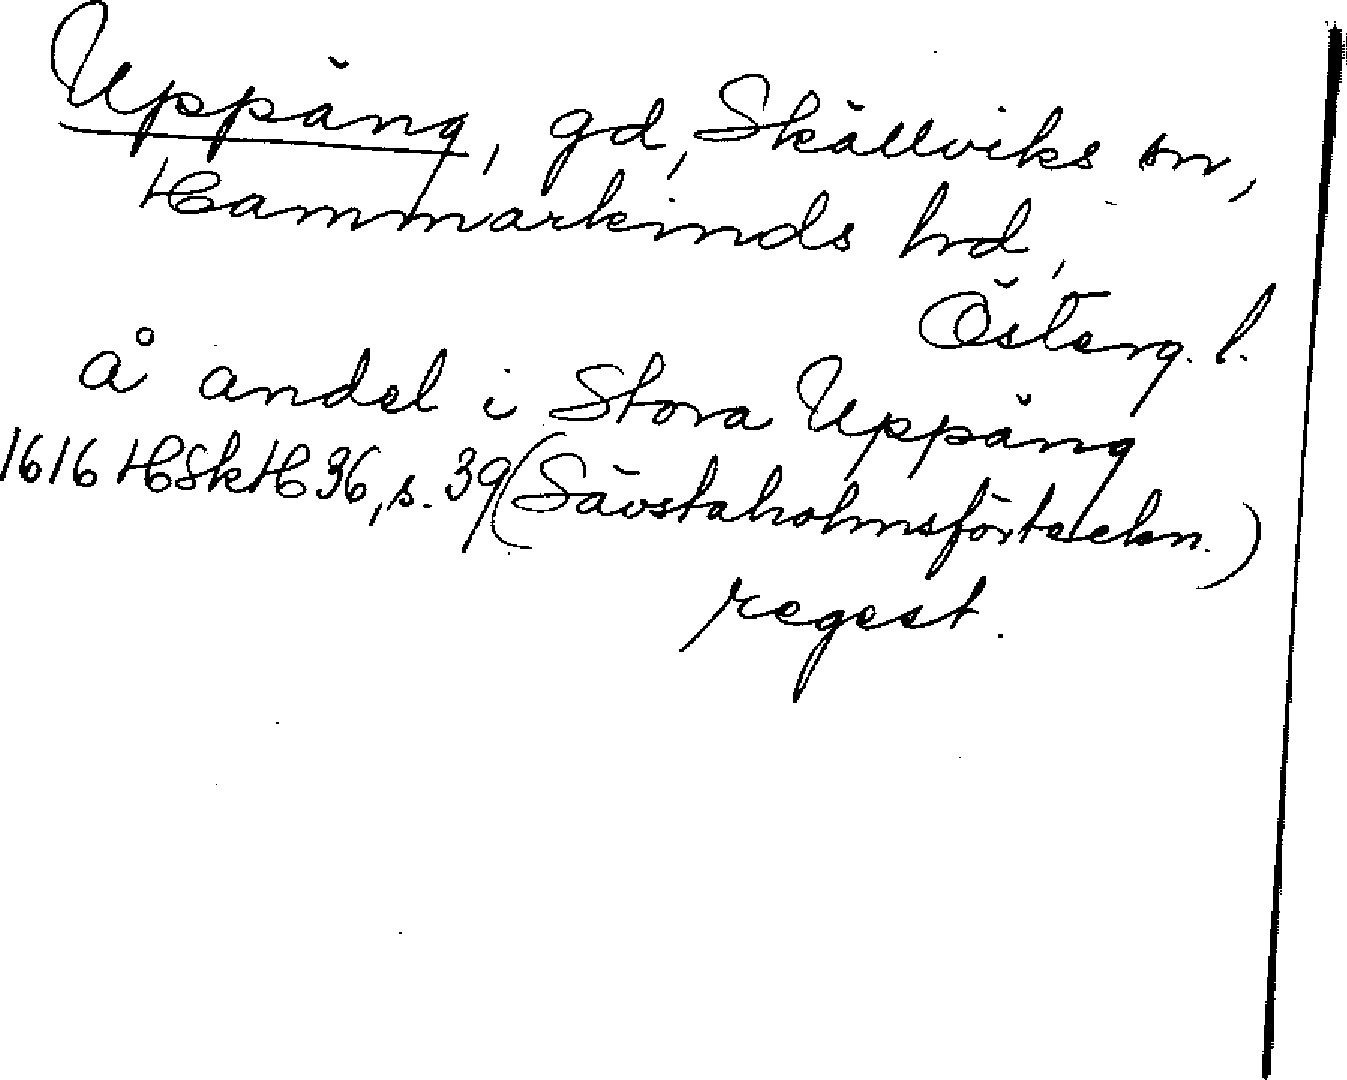 Uppäng, gd, Skällviks sn,
Hammarkinds hd,
Österg. l.
å andel i Stora Uppäng
1616 HSkH 36, s. 39 (Sävstaholmsförteckn.)
regest.